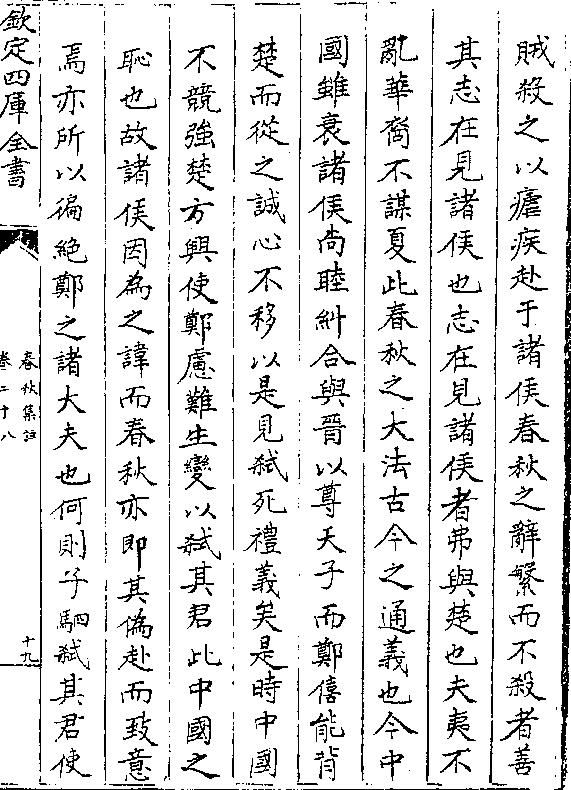 賊殺之以瘧疾赴于諸侯春秋之辭繁而不殺者善
其志在見諸侯也志在見諸侯者弗與楚也夫夷不
亂華裔不謀夏此春秋之大法古今之通義也今中
國雖衰諸侯尚睦糾合與晉以尊天子而鄭僖能背
楚而從之誠心不移以是見弑死禮義矣是時中國
不競強楚方興使鄭慮難生變以弑其君此中國之
恥也故諸侯因為之諱而春秋亦即其偽赴而致意
焉亦所以徧絶鄭之諸大夫也何則子駟弑其君使
欽定四庫全書
春秋集註
卷二十八
十九